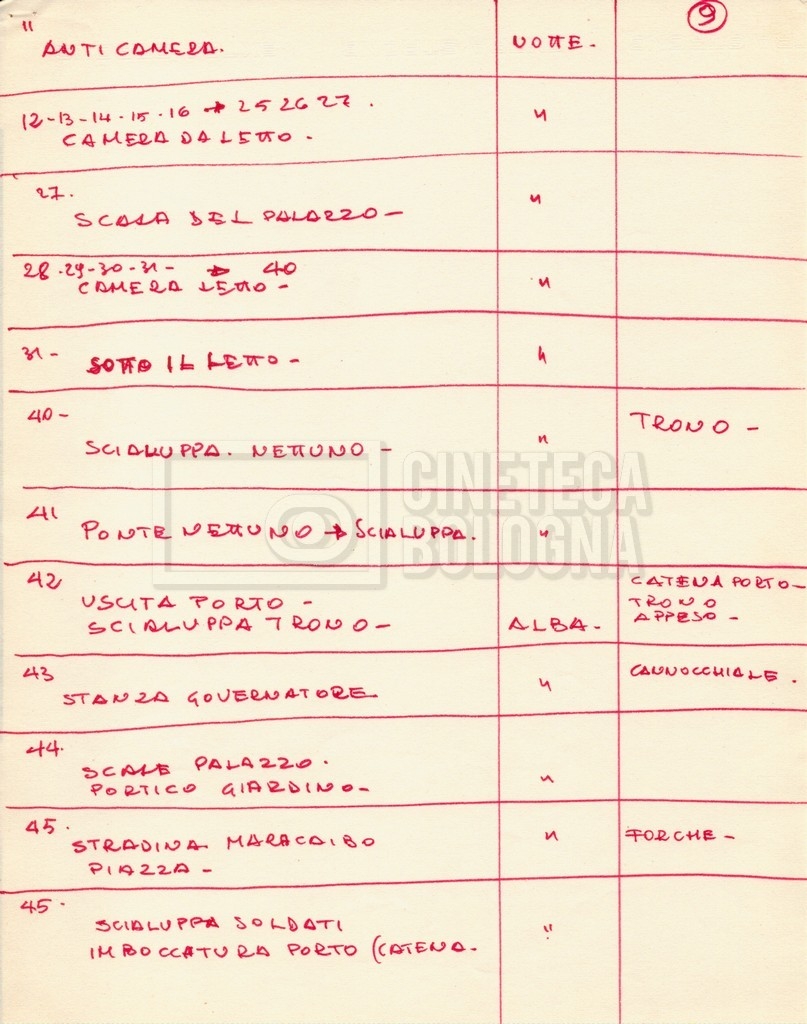 9
11
ANTICAMERA.
NOTTE-
12-13-14-15-16 → 25 26 27.
CAMERA DA LETTO.
"
27.
SCALA DEL PALAZZO-
"
28.29-30-31- → 40
CAMERA LETTO-
"
31-
SOTTO IL LETTO-
"
40-
TRONO-
SCIALUPPA. NETTUNO-
"
41
PONTE NETTUNO → SCIALUPPA.
"
42
USCITA PORTO-
SCIALUPPA TRONO-
ALBA-
CATENA PORTO-
TRONO
APPESO-
43
STANZA GOVERNATORE
"
CANNOCCHIALE.
44.
SCALE PALAZZO.
PORTICO GIARDINO-
"
45.
STRADINA MARACAIBO
PIAZZA-
"
FORCHE-
45.
SCIALUPPA SOLDATI
IMBOCCATURA PORTO (CATENA.
"
CINETECA
BOLOGNA